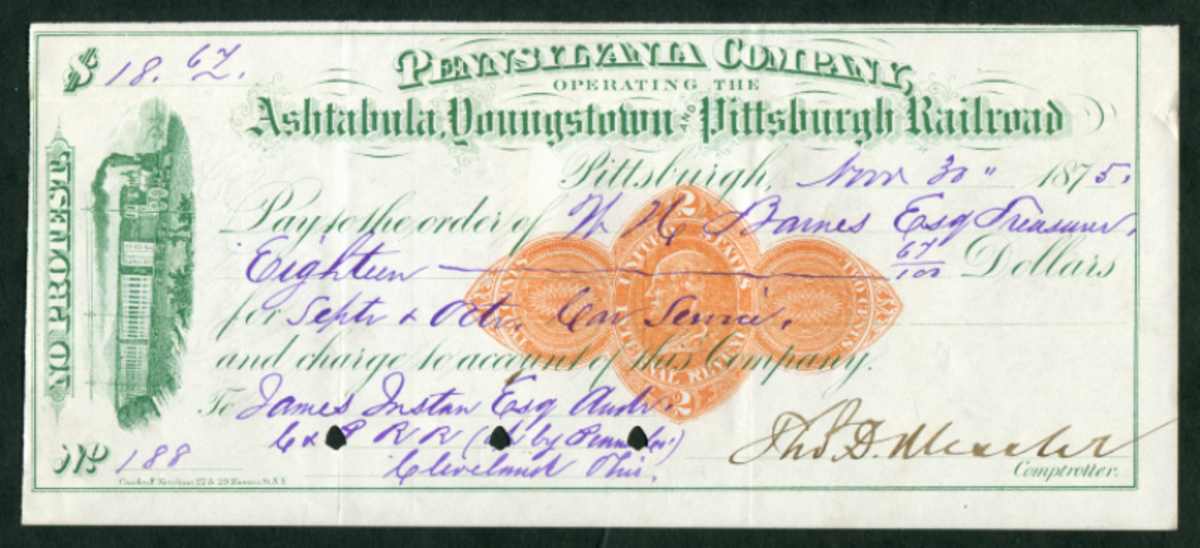 $ 18.67.
PENNSYLVANIA COMPANY,
OPERATING THE
Ashtabula, Youngstown AND Pittsburgh Railroad
Pittsburgh, Novr 30" 1875.
Pay to the order of W H Barnes Esq Treasurer.
Eighteen 67/100 Dollars
for Septr & Octr. Car Service.
and charge to account of this Company.
To James Esq Audr.
C & P R R ( by Penna Co)
Cleveland Ohio.
Thos. D. Messler
Comptroller.
No 188
NO PROTEST.
27 & 29 St. N.Y.
UNITED STATES
INTERNAL REVENUE
2
2
TWO CENTS
TWO CENTS